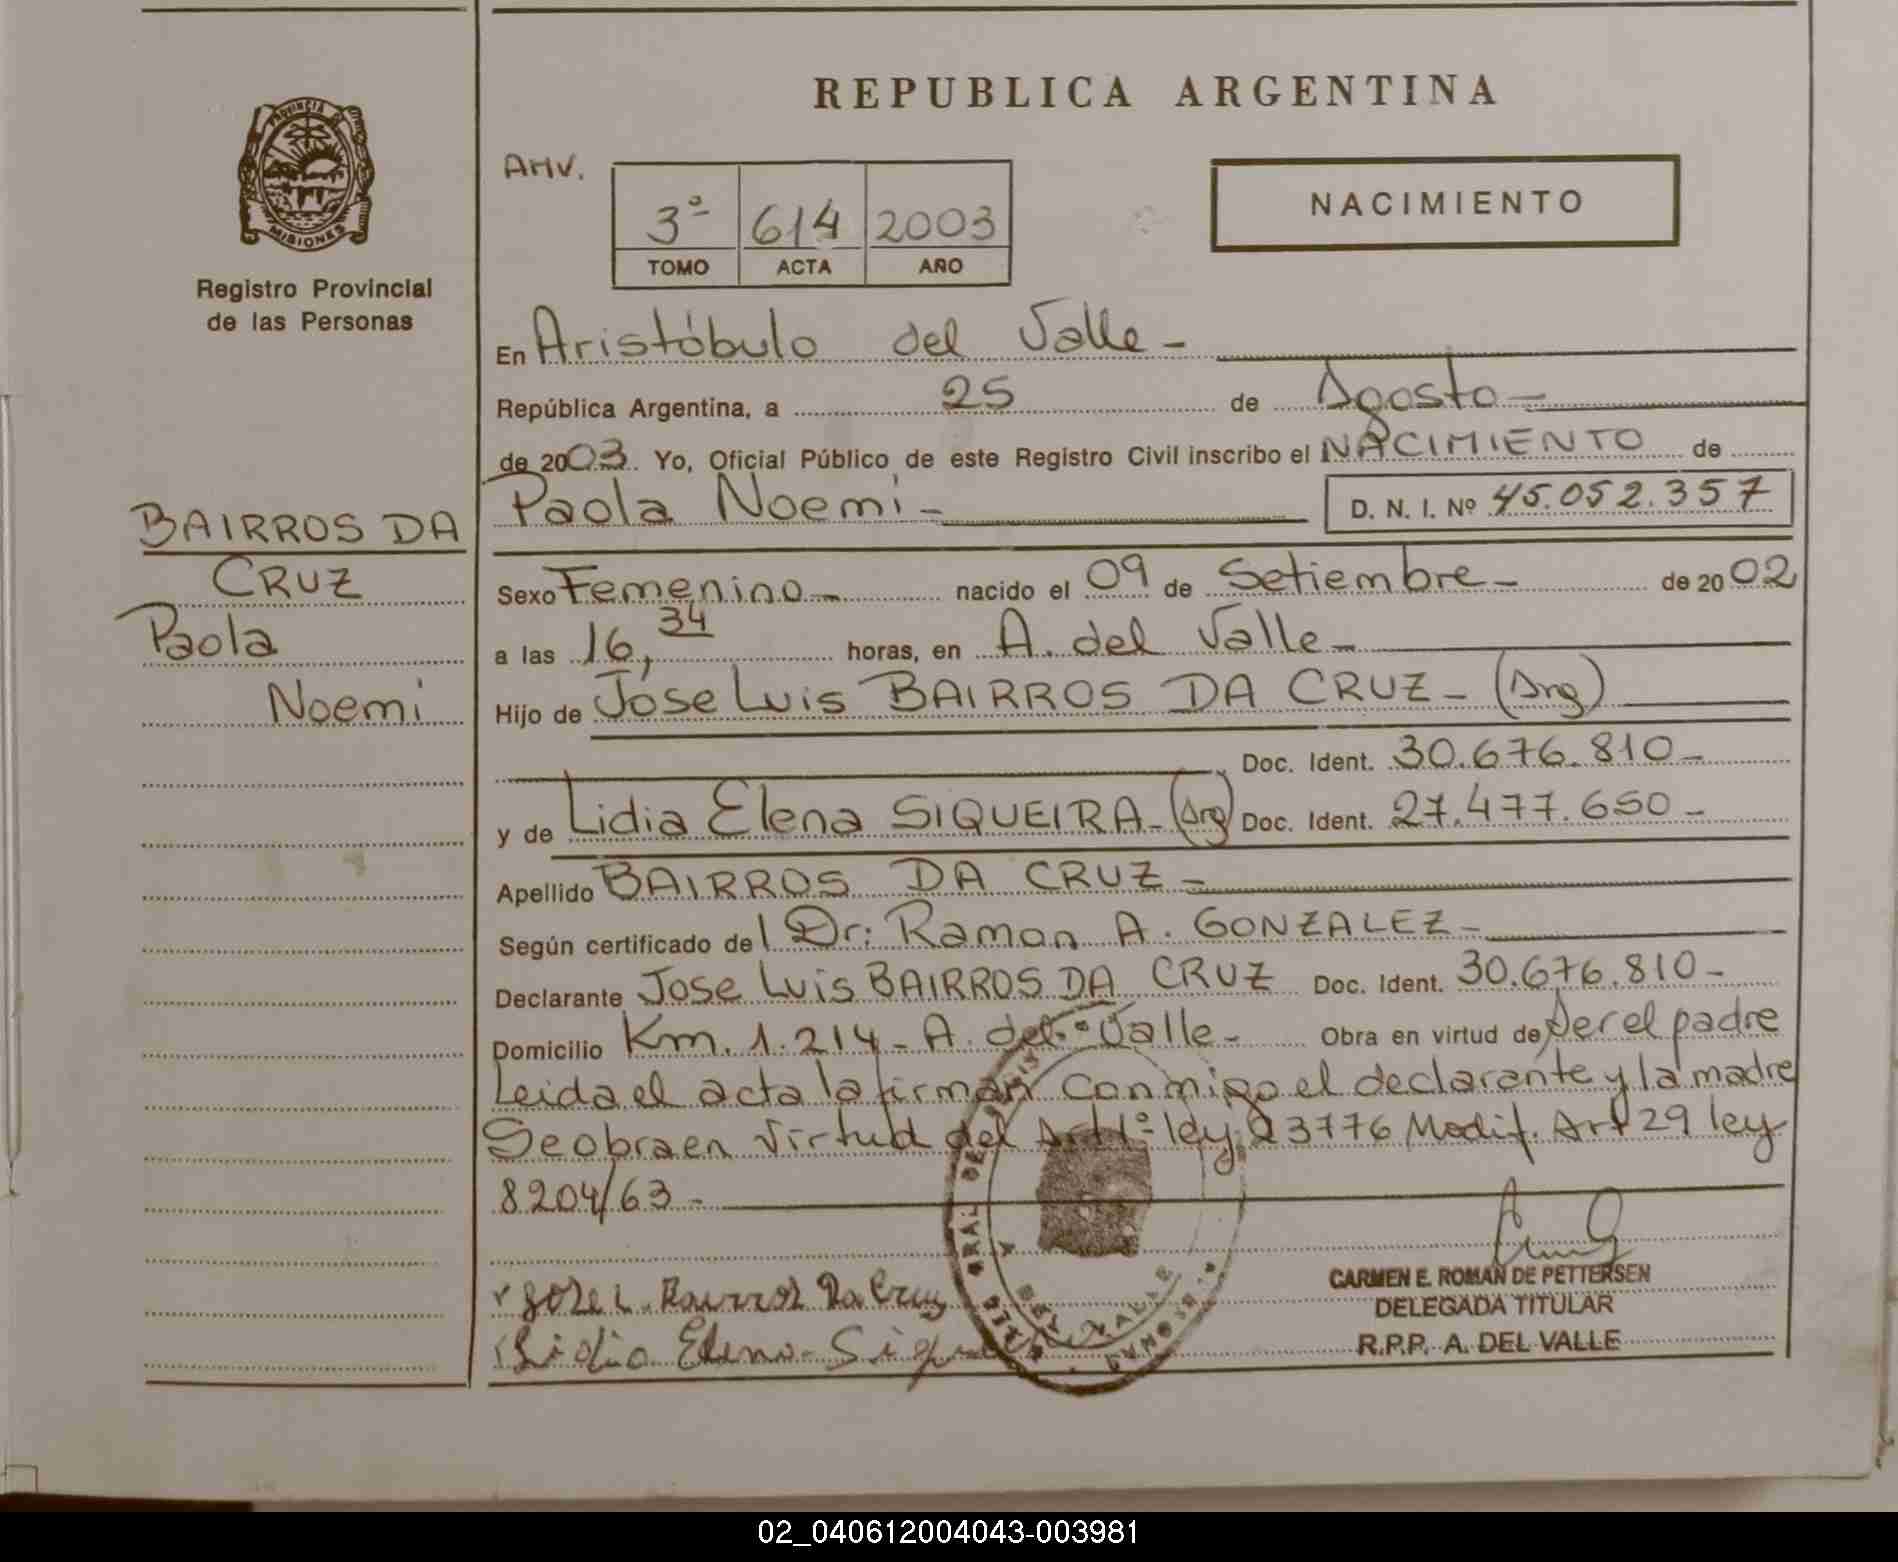 REPUBLICA ARGENTINA
PROVINCIA DE
MISIONES
Registro Provincial
de las Personas
AMV.
3º 614 2003
TOMO ACTA AÑO
NACIMIENTO
En Aristóbulo del Valle-
República Argentina, a 25 de Agosto-
de 2003. Yo, Oficial Público de este Registro Civil inscribo el NACIMIENTO de
Paola Noemi- D. N. I. Nº 45.052.357
BAIRROS DA
CRUZ
Paola
Noemi
Sexo Femenino- nacido el 09 de Setiembre- de 2002
a las 16,34 horas, en A. del Valle-
Hijo de Jose Luis BAIRROS DA CRUZ- (Arg)
Doc. Ident. 30.676.810-
y de Lidia Elena SIQUEIRA-(Arg) Doc. Ident. 27.477.650-
Apellido BAIRROS DA CRUZ-
Según certificado del Dr: Ramon A. GONZALEZ-
Declarante Jose Luis BAIRROS DA CRUZ Doc. Ident. 30.676.810-
Domicilio Km. 1.214- A. del Valle- Obra en virtud de Ser el padre
Leida el acta la firman conmigo el declarante y la madre
Se obra en virtud del Art 1º ley 23776 Modif. Art 29 ley
8204/63-
Jose L. Bairros Da Cruz
Lidia Elena Siqueira
CARMEN E. ROMAN DE PETTERSEN
DELEGADA TITULAR
R.P.P. A. DEL VALLE
02_040612004043-003981